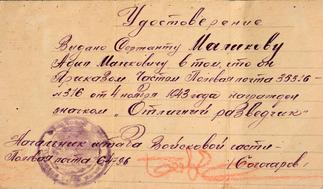 Удостоверение
Выдано Сержанту Машкову
в том, что он
Приказом Частям Полевая почта 35316
№316 от 4 ноября 1943 года награжден
значком „Отличный разведчик"
Начальник штаба Войсковой части-
Полевая почта